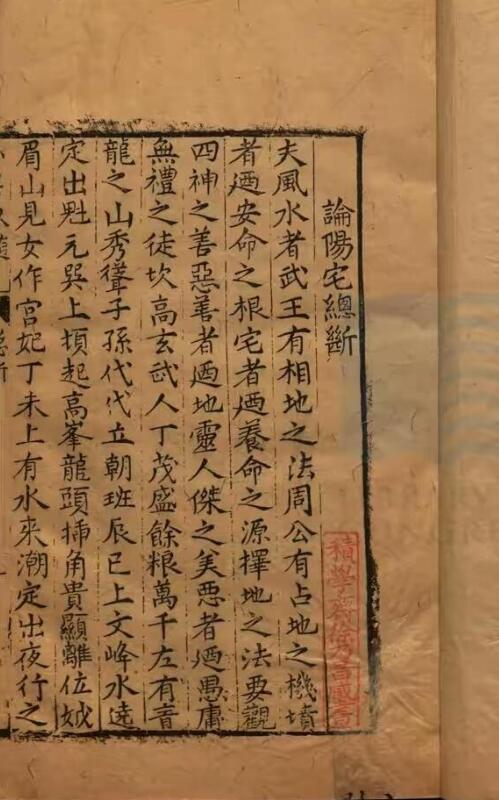 論陽宅總斷
夫風水者武王有相地之法周公有占地之機墳
者廼安命之根宅者廼養命之源擇地之法要觀
四神之善惡善者廼地靈人傑之美惡者廼愚庸
無禮之徒坎高玄武人丁茂盛餘粮萬千左有青
龍之山秀聳子孫代代立朝班辰巳上文峰水遶
定出魁元巽上墳起高峯龍頭揷角貴顯離位蛾
眉山見女作宮妃丁未上有水來潮定出夜行之
積學齋徐乃昌藏書